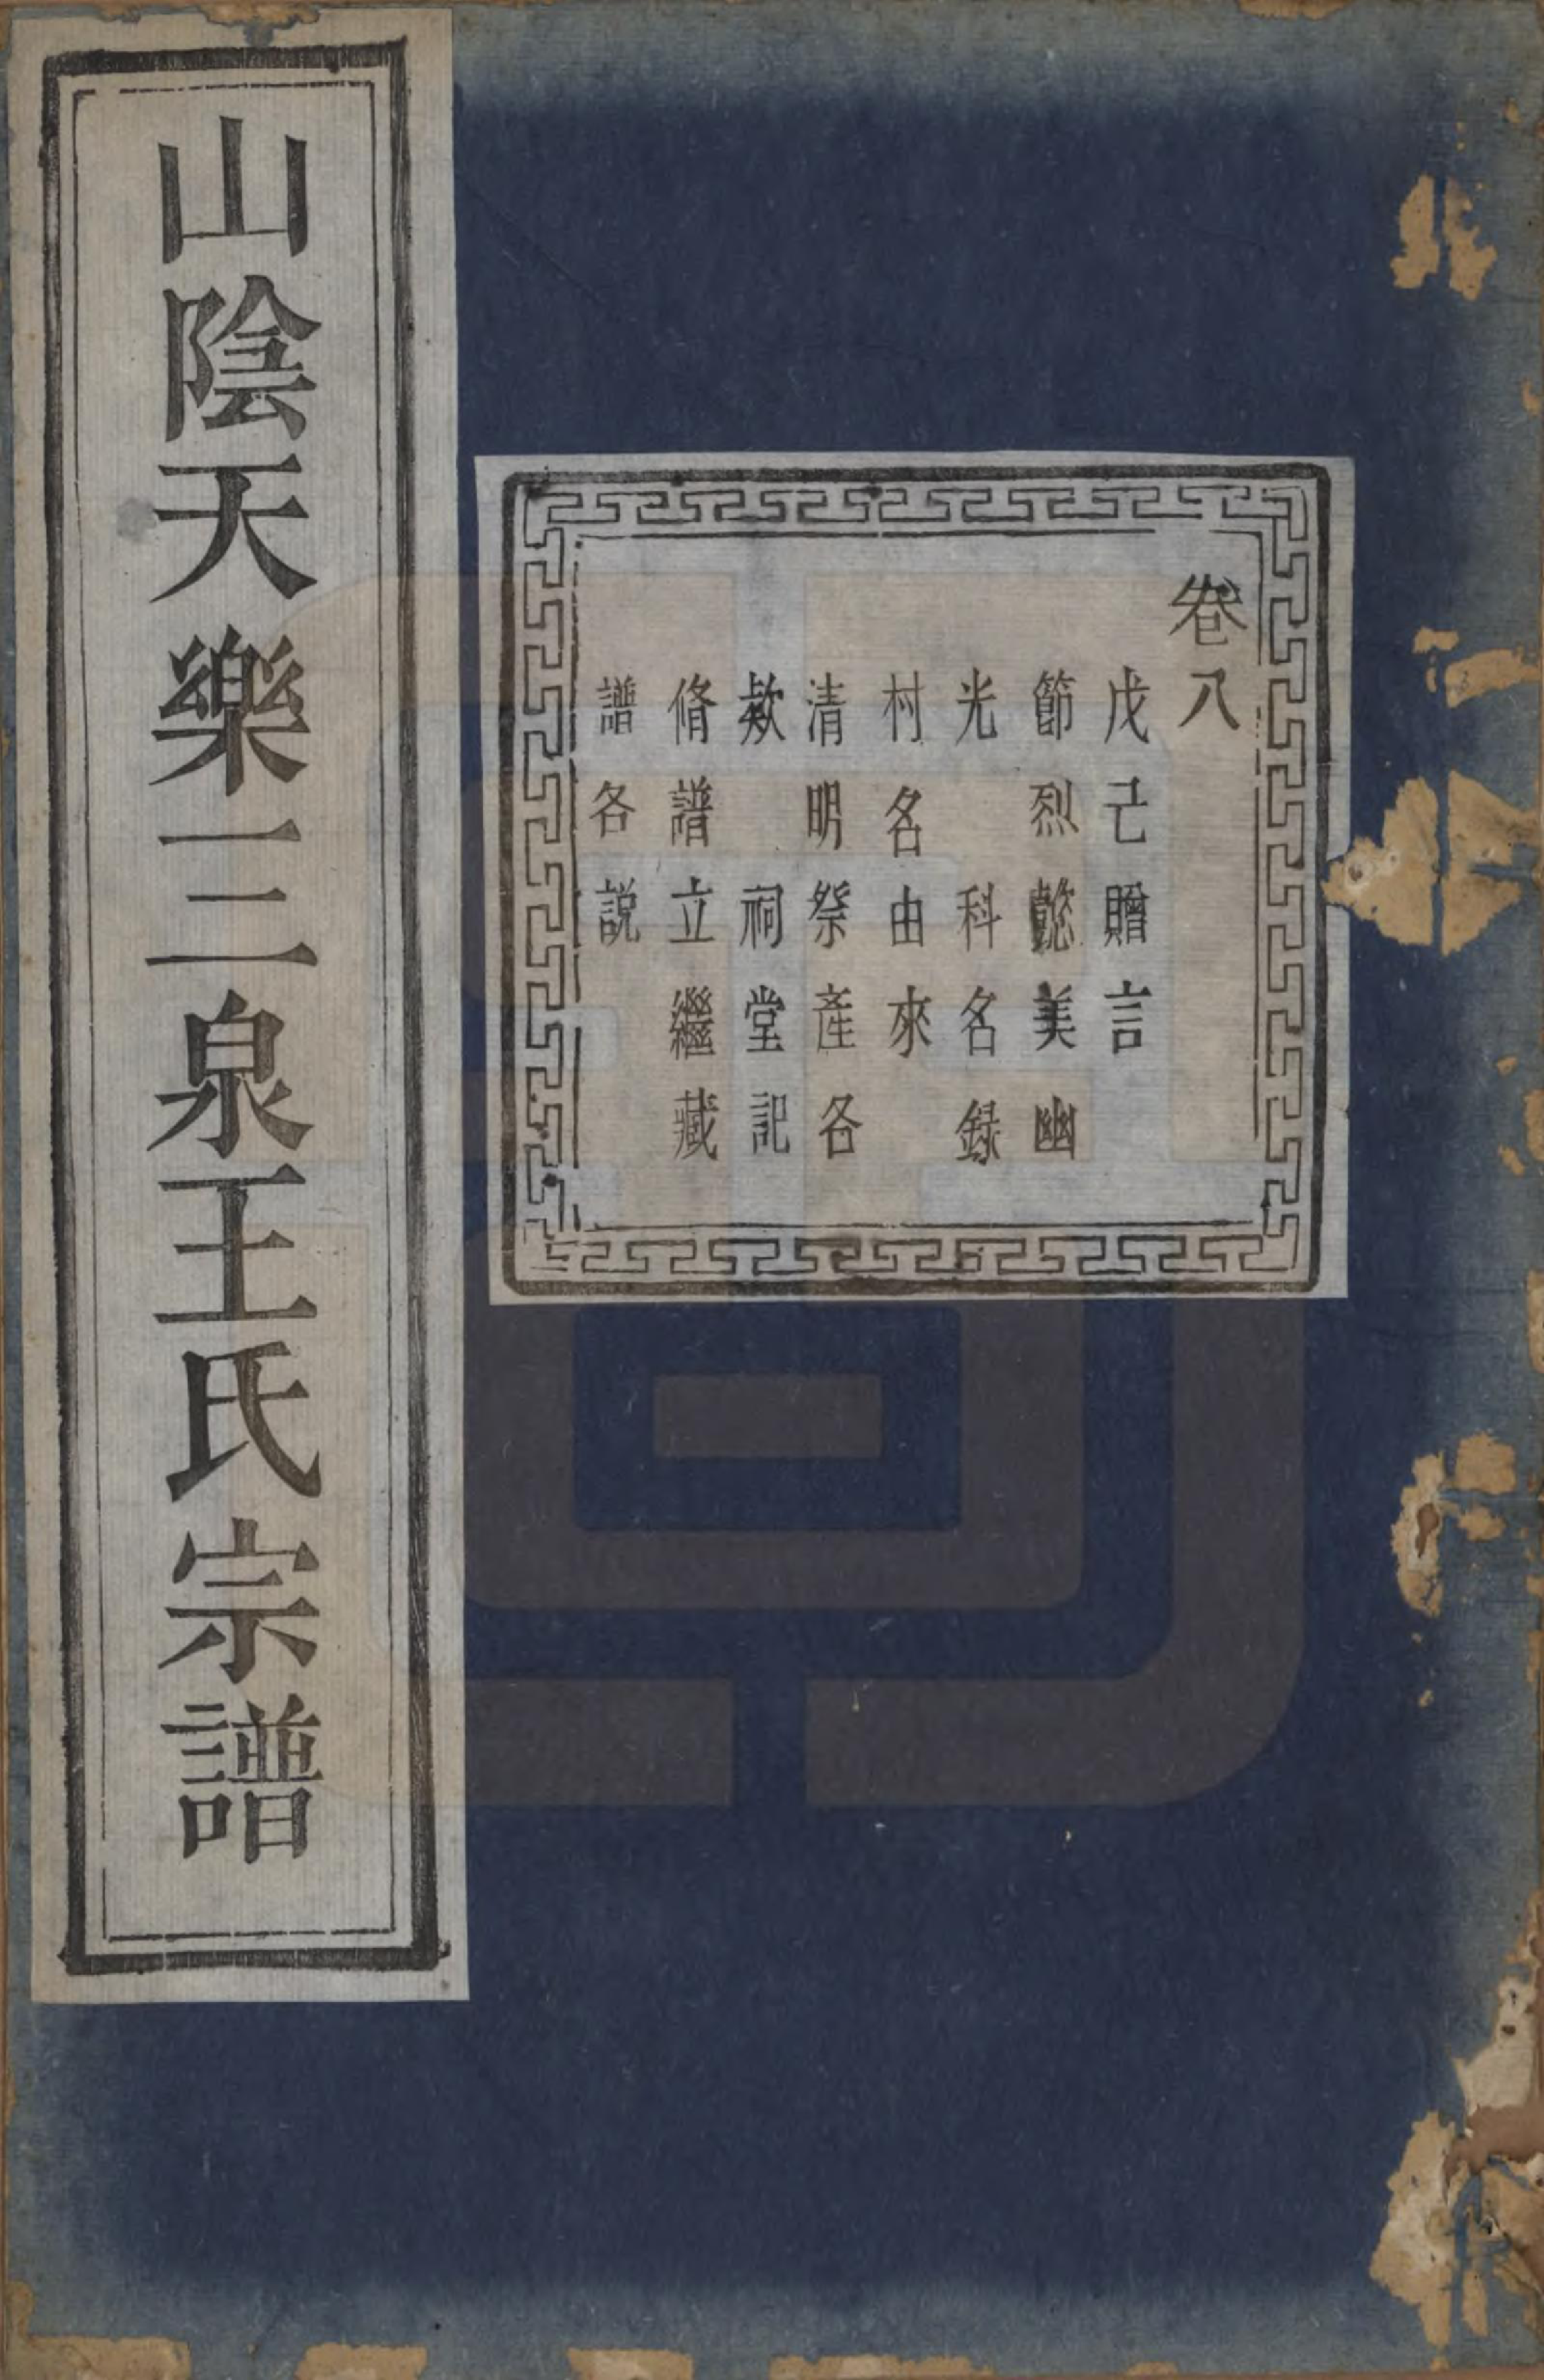 卷八
戊己贈言
節烈懿美幽
光 科名錄
村名由來
清明祭產各
欵 祠堂記
脩譜立繼藏
譜各説
山陰天樂三泉王氏宗譜